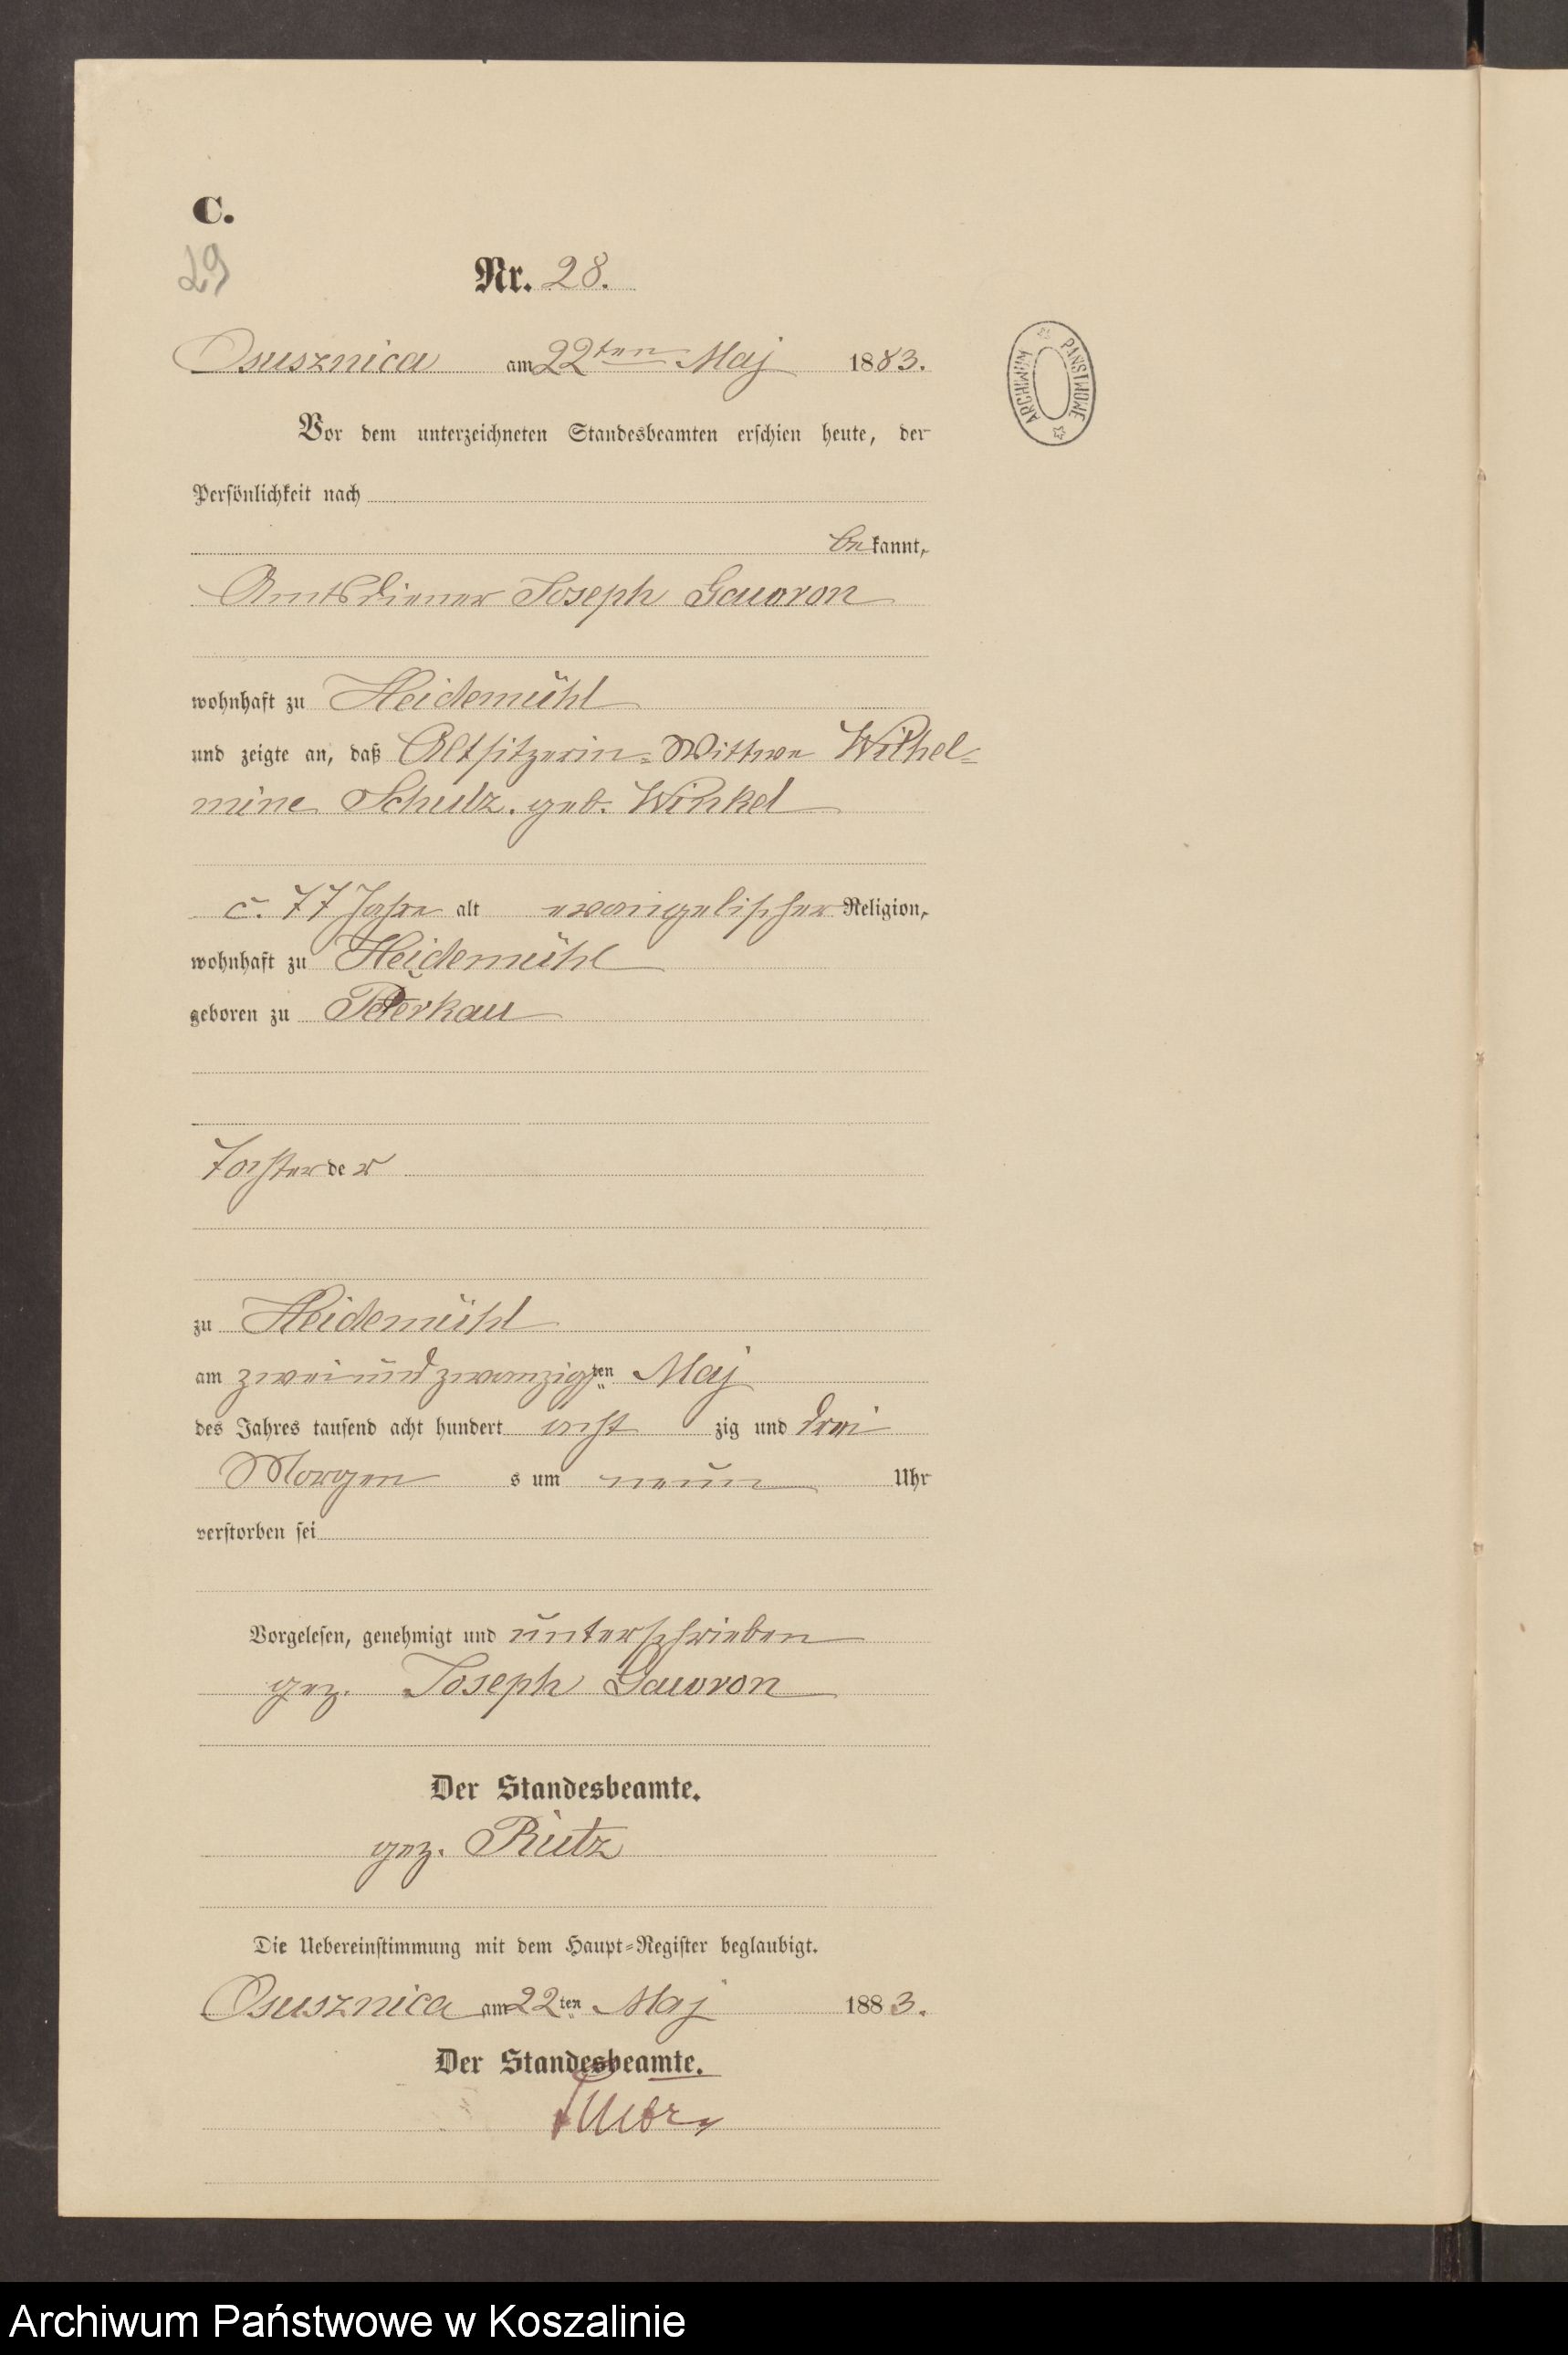 C.
29
Nr. 28.
Osusznica am 22ten Maj 1883.
ARCHIWUM PAŃSTWOWE
Vor dem unterzeichneten Standesbeamten erschien heute, der
Persönlichkeit nach
bekannt,
Amtsdiener Joseph Gawron
wohnhaft zu Heidemühl
und zeigte an, daß Altsitzerin-Wittwe Wilhel-
mine Schulz. geb. Winkel
c. 77 Jahre alt evangelischer Religion,
wohnhaft zu Heidemühl
geboren zu Peterkau
Tochter der
zu Heidemühl
am zweiundzwanzigten Maj
des Jahres tausend acht hundert acht zig und drei
Morgen s um neun Uhr
verstorben sei
Vorgelesen, genehmigt und unterschrieben
gez. Joseph Gawron
Der Standesbeamte.
gez. Rutz
Die Uebereinstimmung mit dem Haupt-Register beglaubigt.
Osusznica am 22ten Maj 1883.
Der Standesbeamte.
Archiwum Państwowe w Koszalinie